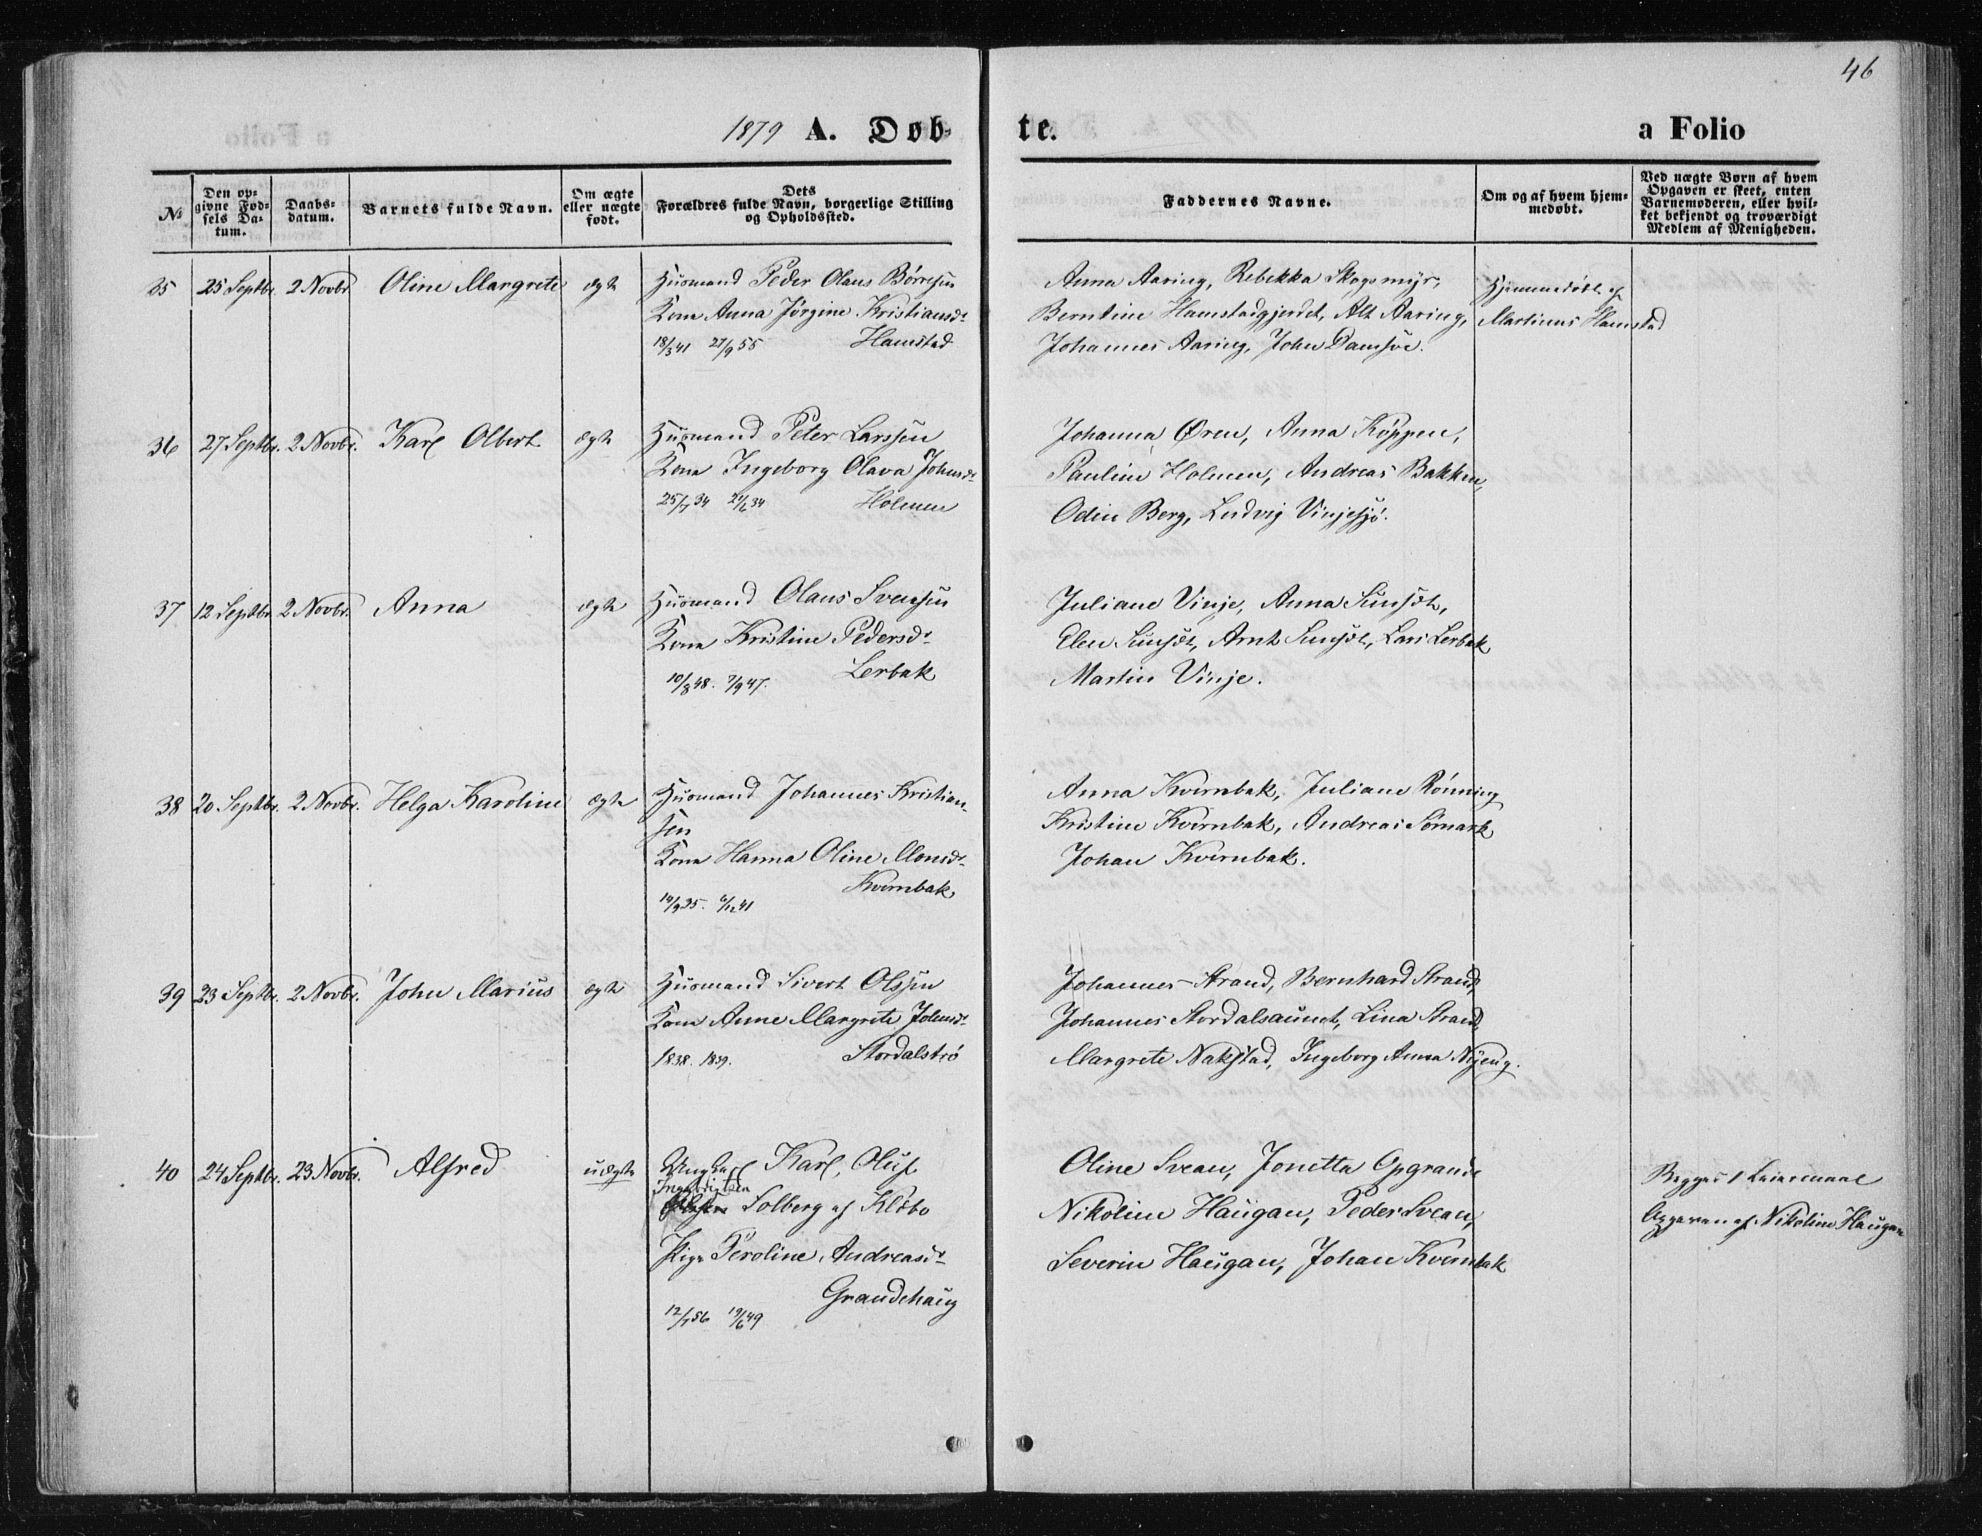 46
1879 A. Døb-
te.
a Folio
№
Den op-
givne Fød-
sels Da-
tum.
Daabs-
datum.
Barnets fulde Navn.
Om ægte
eller uægte
født.
Dets
Forældres fulde Navn, borgerlige Stilling
og Opholdssted.
Faddernes Navne.
Om og af hvem hjem-
medøbt.
Ved uægte Børn af hvem
Opgaven er skeet, enten
Barnemoderen, eller hvil-
ket bekjendt og troværdigt
Medlem af Menigheden.
35 25 Septbr. 2 Novbr. Oline Margrete ægte
Husmand Peder Olaus Børresen
Kone Anna Jørgine Kristiansdr
18/3 41 27/9 55 Hamstad
Anna Aaring, Rebekka Skogsmyr,
Berntine Hamstadgjerdet, Alt Aaring,
Johannes Aaring, John Damsve.
Hjemmedøbt af
Martinus Hamstad
36 27 Septbr. 2 Novbr. Karl Olbert ægte
Husmand Peter Larssen
Kone Ingeborg Olava Johnsdr
25/7 34 29/6 34 Holmen
Johanna Øren, Anna Køppen,
Pauline Holmen, Andreas Bakken,
Odin Berg, Ludvig Vinjesjø.
37 12 Septbr. 2 Novbr. Anna ægte
Husmand Olaus Svensen
Kone Kristine Pedersdr
10/8 48. 7/9 47. Lerbak
Juliane Vinje, Anna Sunset,
Elen Sunset, Arnt Sunset, Lars Lerbak
Martin Vinje.
38 20 Septbr. 2 Novbr. Helga Karoline ægte
Husmand Johannes Kristian-
sen
Kone Hanna Oline Monsdr
14/9 35. 6/12 41 Kvernbak
Anna Kvernbak, Juliane Rønning
Kristine Kvernbak, Andreas Sømark
Johan Kvernbak.
39 23 Septbr. 2 Novbr. John Marius ægte
Husmand Sivert Olssen
Kone Anne Margrete Johnsdr
1838. 1839. Stordalstrø
Johannes Strand, Bernhard Strand,
Johannes Stordalsaunet, Lina Strand,
Margrete Nakstad, Ingeborg Anna Nyeng.
40 24 Septbr. 23 Novbr. Alfred uægte
Ungkarl Karl Oluf
Ingebrigtsen
Solberg af Klæbo
Pige Peroline Andreasdr
Grandehaug
12/7 56 19/6 49
Oline Svean, Jonetta Opgrande
Nikoline Haugan, Peder Svean,
Severin Haugan, Johan Kvernbak
Begges 1 Leiermaal
Opgaven af Nikoline Haugan